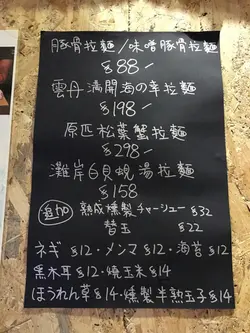 豚骨拉麵/味噌豚骨拉麵
$88-
雲丹満開海の幸拉麵
$198-
原匹松葉蟹拉麵
$298-
灘岸白貝蜆湯拉麵
$158
追加 熟成燻製チャーシュー $32
替玉 $22
ネギ $12・メンマ $12・海苔 $12
黒木耳 $12・燒玉米 $14
ほうれん草 $14・燻製半熟玉子 $14